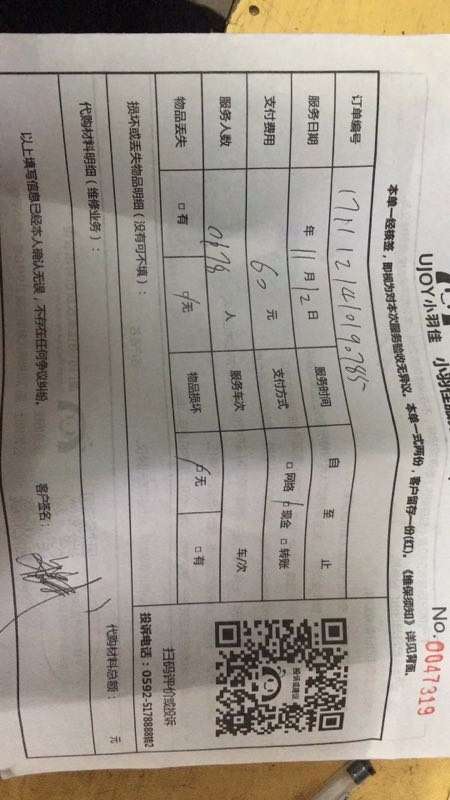 UJOY小羽佳 小羽佳
No.0047319
本单一经核签，即视为对本次服务验收无异议。本单一式两份，客户留存一份(红)。《维保须知》详见背面。
订单编号 1711121410190785
服务日期 年 11 月 12 日 服务时间 自 至 止
支付费用 60 元 支付方式 □网络 □现金 □转账
服务人数 人 服务车次 车/次
物品丢失 □有 □无 物品损坏 □无 □有
损坏或丢失物品明细（没有可不填）：
代购材料明细（维修业务）：
代购材料总额： 元
以上填写信息已经本人确认无误，不存在任何争议纠纷。 客户签名：
投诉或建议
扫码评价或投诉
投诉电话：0592-5178888转2